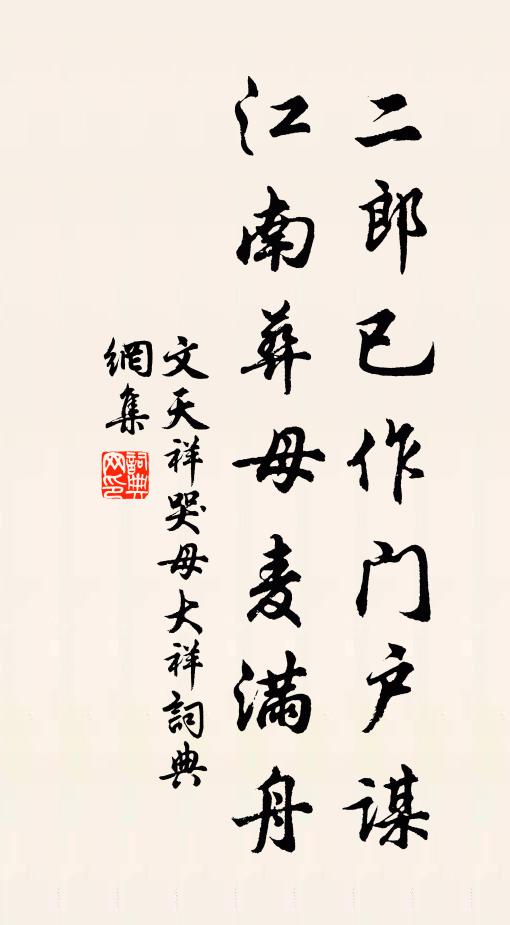 二郎已作门户谋
江南葬母麦满舟
文天祥哭母大祥詞典
網集
詞典
网印